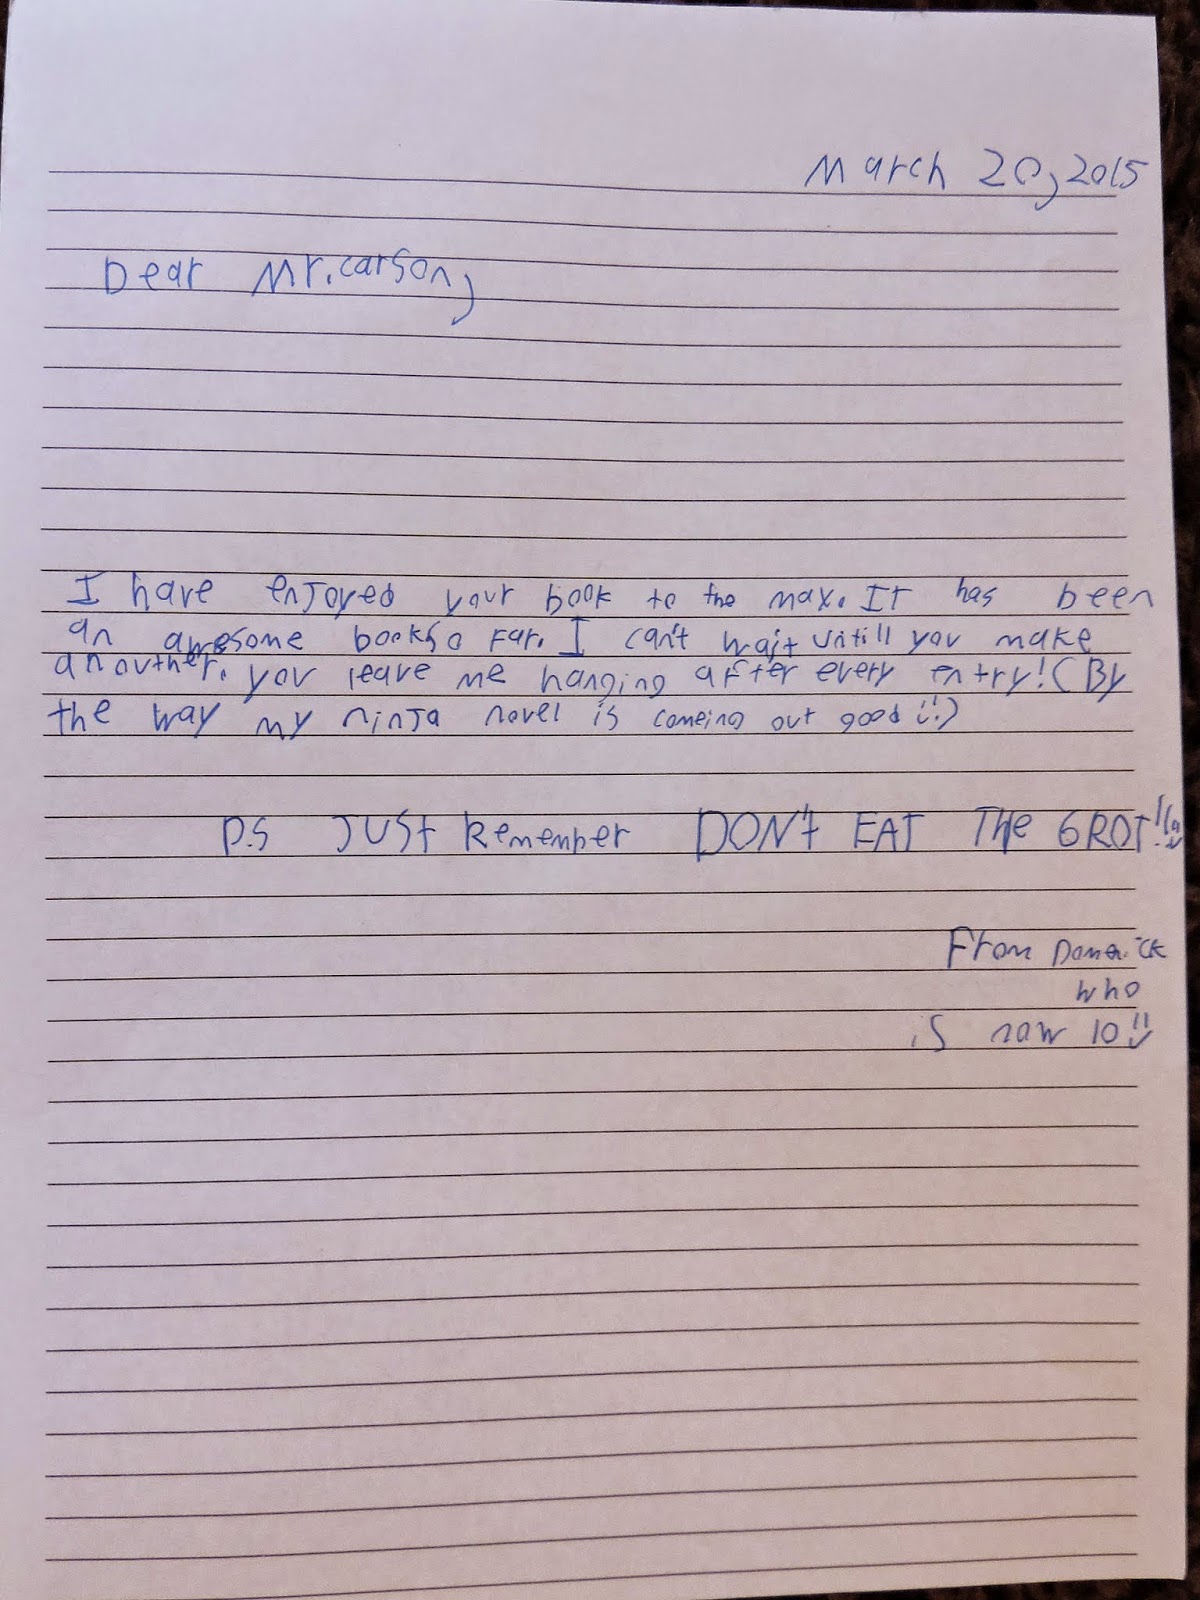 March 20, 2015
Dear Mr. carson,
I have enjoyed your book to the max. It has been
an awesome book so far. I can't wait untill you make
anouther. you leave me hanging after every entry! (By
the way my ninja novel is comeing out good!!)
P.S JUST Remember DON't EAT The GROT!!
From Domenick
who
is now 10!!